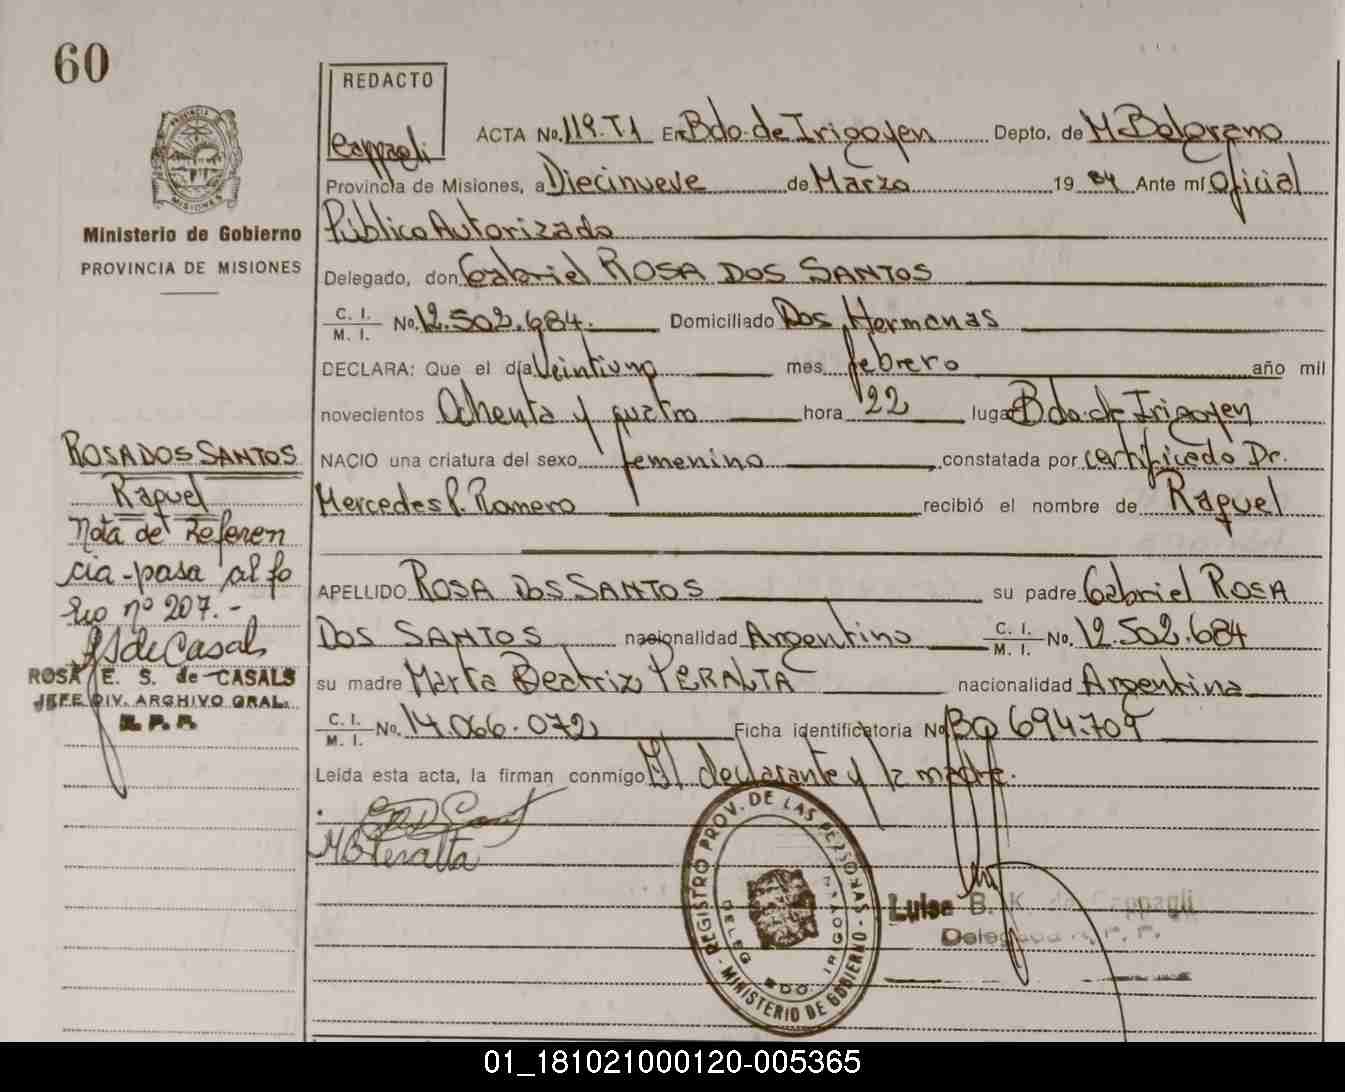 60
REDACTO
Cappagli
ACTA No. 119.T1 En Bdo. de Irigoyen Depto. de M Belgrano
Provincia de Misiones, a Diecinueve de Marzo 19 84 Ante mí Oficial
Público Autorizado
Delegado, don Gabriel ROSA DOS SANTOS
C. I.
M. I. No. 12.502.684. Domiciliado Dos Hermanas
DECLARA: Que el día Veintiuno mes febrero año mil
novecientos Ochenta y cuatro hora 22 lugar Bdo. de Irigoyen
NACIO una criatura del sexo femenino constatada por certificado Dr.
Mercedes R. Romero recibió el nombre de Raquel
APELLIDO ROSA DOS SANTOS su padre Gabriel ROSA
DOS SANTOS nacionalidad Argentino C. I. M. I. No. 12.502.684
su madre Marta Beatriz PERALTA nacionalidad Argentina
C. I. M. I. No. 14.066.072 Ficha identificatoria No BQ 694.709
Leída esta acta, la firman conmigo El declarante y la madre.
MBPeralta
PROVINCIA
MISIONES
Ministerio de Gobierno
PROVINCIA DE MISIONES
ROSA DOS SANTOS
Raquel
Nota de Referen
cia - pasa al fo
lio nº 207.-
RS de Casals
ROSA E. S. de CASALS
JEFE DIV. ARCHIVO GRAL.
R. P. P.
REGISTRO PROV. DE LAS PERSONAS - MINISTERIO DE GOBIERNO -
DELEG. BDO. IRIGOYEN
Luisa B. K. de
Delegada R. P. P.
01_181021000120-005365